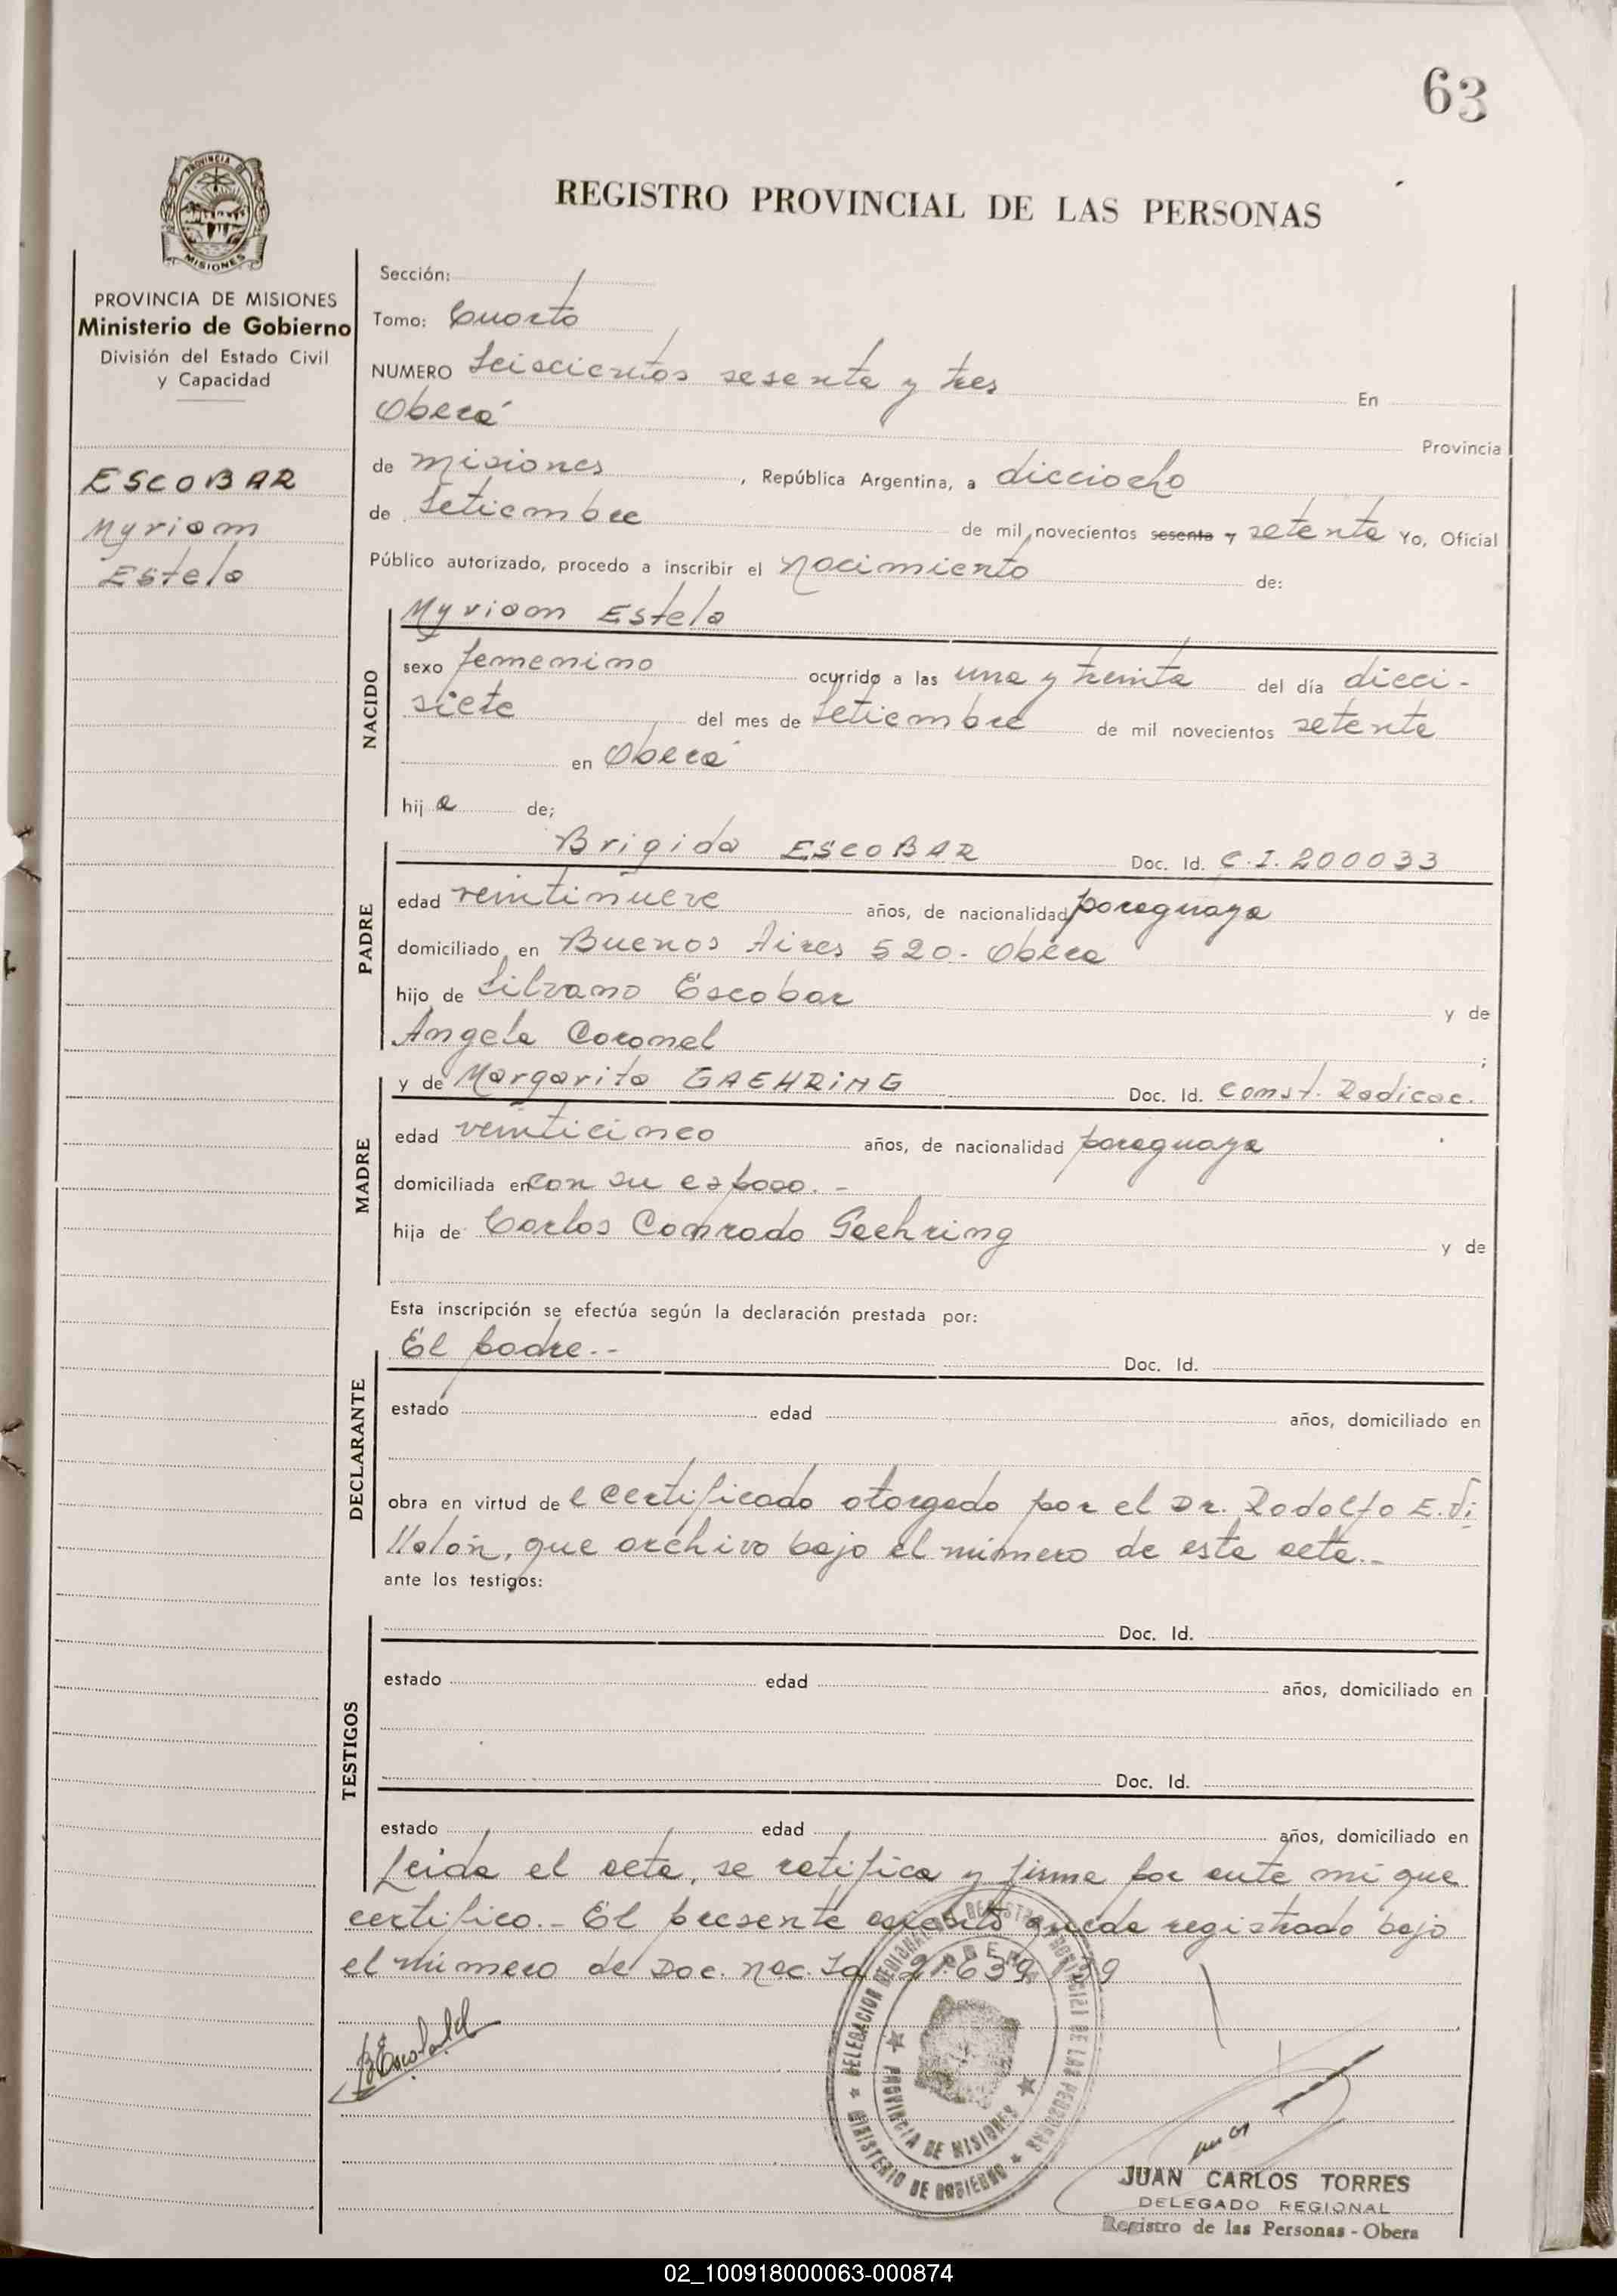 63
REGISTRO PROVINCIAL DE LAS PERSONAS
PROVINCIA DE MISIONES
PROVINCIA DE MISIONES
Ministerio de Gobierno
División del Estado Civil
y Capacidad
ESCOBAR
Myriam
Estela
Sección:
Tomo: Cuarto
NUMERO Seiscientos sesenta y tres En
Oberá Provincia
de Misiones, República Argentina, a dieciocho
de Setiembre de mil novecientos sesenta y setenta Yo, Oficial
Público autorizado, procedo a inscribir el nacimiento de:
NACIDO
Myriam Estela
sexo femenino ocurrido a las una y treinta del día dieci-
siete del mes de Setiembre de mil novecientos setenta
en Oberá
hij a de;
PADRE
Brigido ESCOBAR Doc. Id. C.I. 200033
edad veintinueve años, de nacionalidad paraguaya
domiciliado en Buenos Aires 520- Oberá
hijo de Silvano Escobar y de
Angela Coronel ;
MADRE
y de Margarita GAEHRING Doc. Id. Const. Radicac.
edad veinticinco años, de nacionalidad paraguaya
domiciliada en con su esposo.-
hija de Carlos Conrado Gaehring y de
Esta inscripción se efectúa según la declaración prestada por:
DECLARANTE
El padre.- Doc. Id.
estado edad años, domiciliado en
obra en virtud de l certificado otorgado por el Dr. Rodolfo E. Vi
llalón, que archivo bajo el número de esta acta.-
ante los testigos:
TESTIGOS
Doc. Id.
estado edad años, domiciliado en
Doc. Id.
estado edad años, domiciliado en
Leida el acta, se ratifica y firma por ante mi que
certifico.- El presente asiento queda registrado bajo
el número de Doc. Nac. Id.
PROVINCIA DE MISIONES
MINISTERIO DE GOBIERNO
JUAN CARLOS TORRES
DELEGADO REGIONAL
Registro de las Personas - Obera
02_100918000063-000874